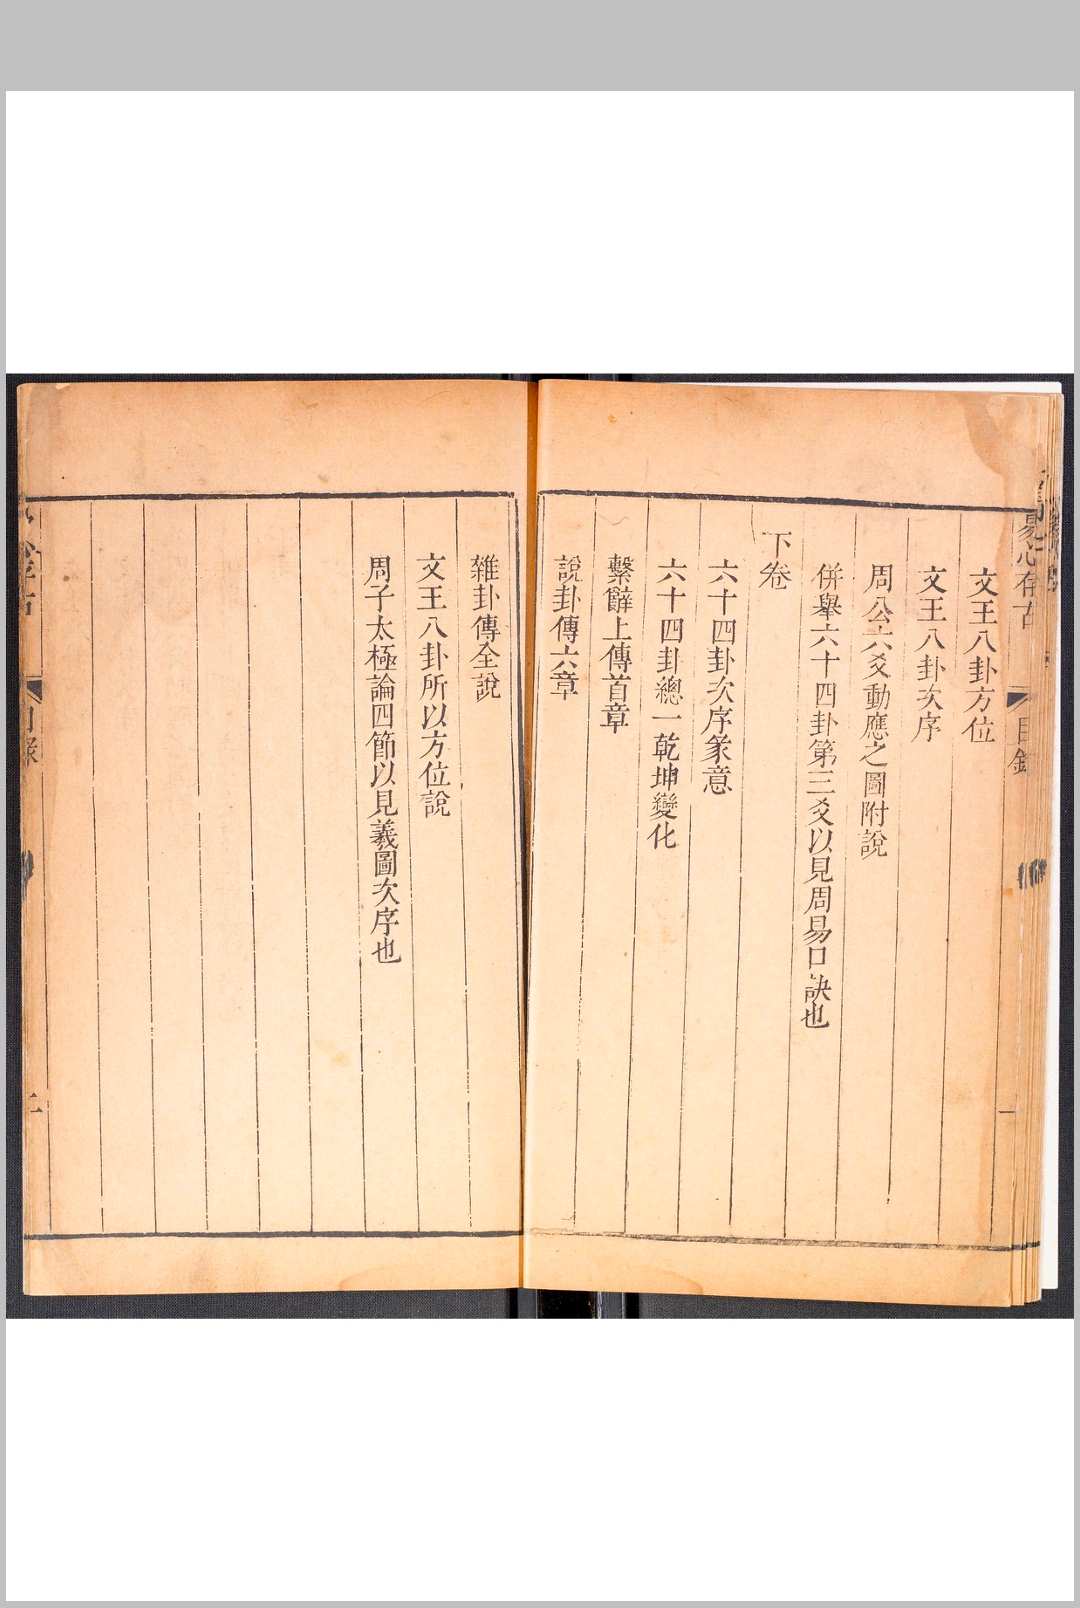 易心存古
目錄
一
文王八卦方位
文王八卦次序
周公六爻動應之圖附說
併舉六十四卦第三爻以見周易口訣也
下卷
六十四卦次序彖意
六十四卦總一乾坤變化
繫辭上傳首章
說卦傳六章
雜卦傳全說
文王八卦所以方位說
周子太極論四節以見羲圖次序也
目錄
二